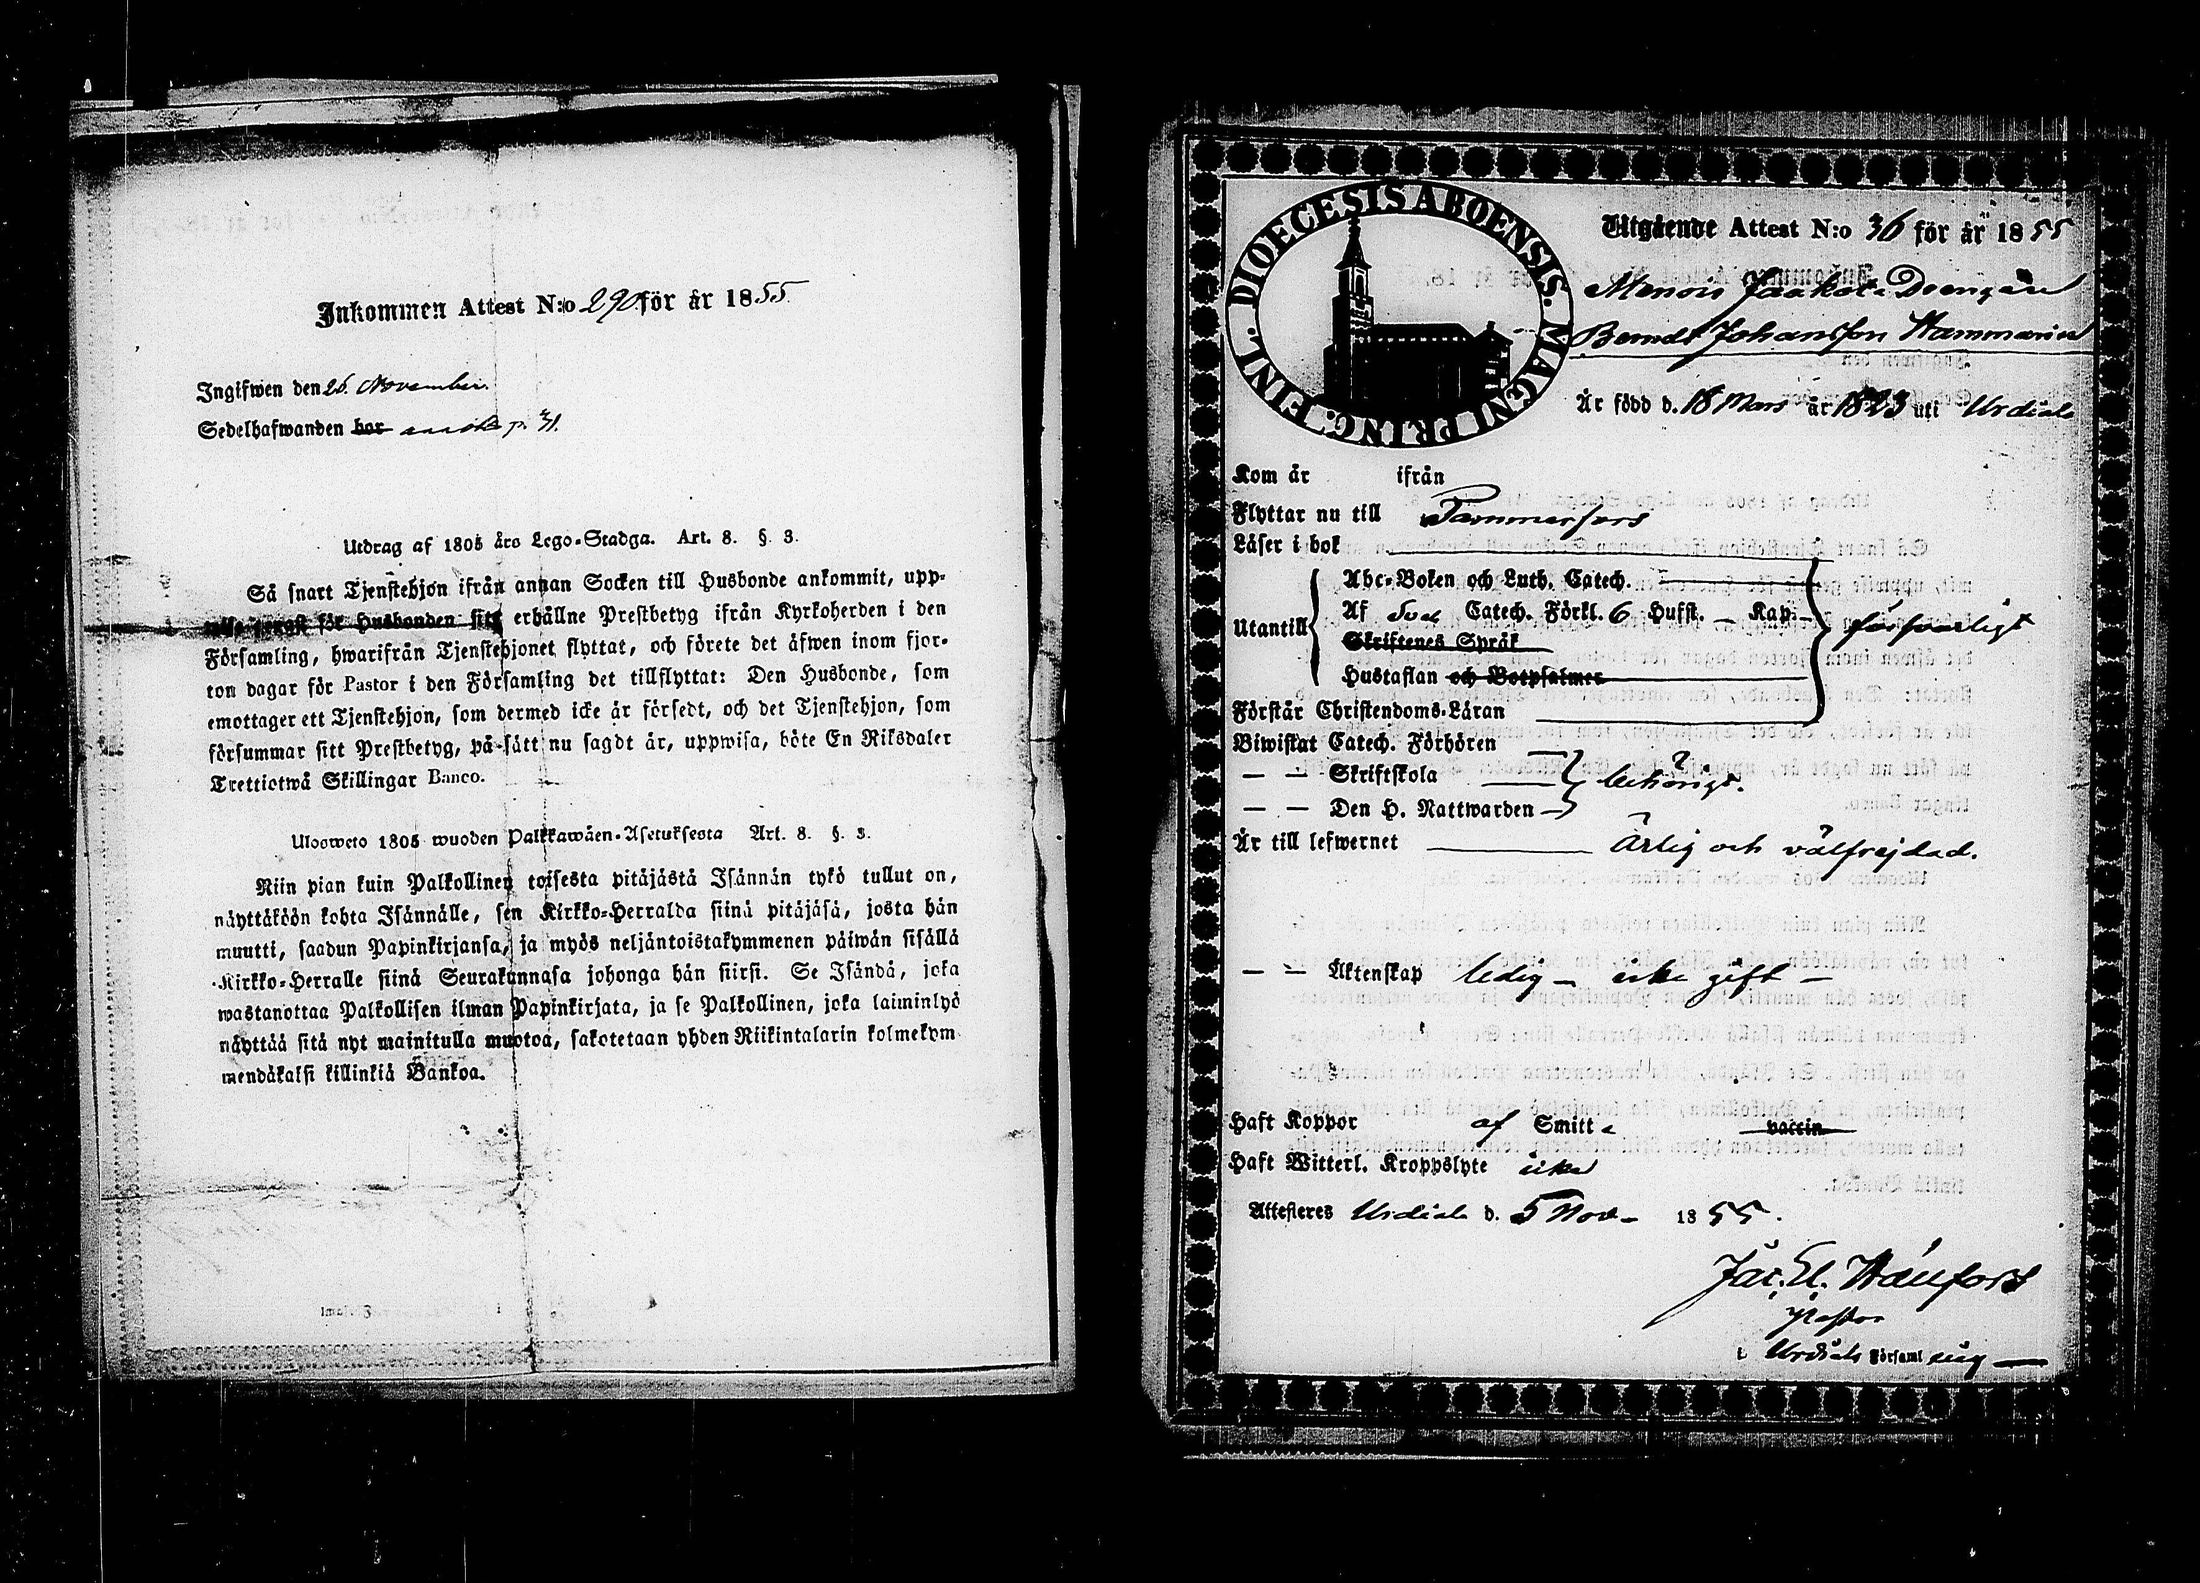 Inkommen Attest N:o 290 för år 1855
Ingifwen den 26. November.
Sedelhafwanden bor p. 31.
Utdrag af 1805 års Lego-Stadga. Art. 8. §. 3.
Så snart Tjenstehjon ifrån annan Socken till Husbonde ankommit, upp-
för Husbonden sitt erhållne Prestbetyg ifrån Kyrkoherden i den
Församling, hwarifrån Tjenstehjonet flyttat, och förete det äfwen inom fjor-
ton dagar för Pastor i den Församling det tillflyttat: Den Husbonde, som
emottager ett Tjenstehjon, som dermed icke är försedt, och det Tjenstehjon, som
försummar sitt Prestbetyg, på sätt nu sagdt är, uppwisa, böte En Riksdaler
Trettiotwå Skillingar Banco.
Ulosweto 1805 wuoden Palkkawäen-Asetuksesta Art. 8. §. 3.
Niin pian kuin Palkollinen toisesta pitäjästä Isännän tykö tullut on,
näyttäköön kohta Isännälle, sen Kirkko-Herralda siinä pitäjäsä, josta hän
muutti, saadun Papinkirjansa, ja myös neljäntoistakymmenen päiwän sisällä
Kirkko-Herralle siinä Seurakunnasa johonga hän siirsi. Se Isändä, joka
wastanottaa Palkollisen ilman Papinkirjata, ja se Palkollinen, joka laiminlyö
näyttää sitä nyt mainitulla muotoa, sakotetaan yhden Riikintalarin kolmekym
mendäkaksi killinkiä Bankoa.
DIOECESIS ABOENSIS. MAGNI PRINC. FINL.
Utgående Attest N:o 36 för år 1855
Menois Jaakola Drengen
Berndt Johansson Hammarin
Är född d. 18 Mars år 1823 uti Urdiala
Kom år ifrån
Flyttar nu till Tammerfors
Läser i bok
Abc-Boken och Luth. Catech.
Utantill Af Catech. Förkl. 6 Hufst. Kap. försvarligt
Skriftenes Språk
Hustaflan och Botpsalmer
Förstår Christendoms-Läran
Biwistat Catech. Förhören
— — Skriftskola behörigt.
— — Den H. Nattwarden
Är till lefwernet Ärlig och välfrejdad.
— — Äktenskap ledig — icke gift —
Haft Koppor af Smitt vaccin
Haft Witterl. Kroppslyte icke
Attesteres Urdiala d. 5 Nov. 1855.
Jac. El. Hällfors
Pastor
i Urdiala Församl ing —